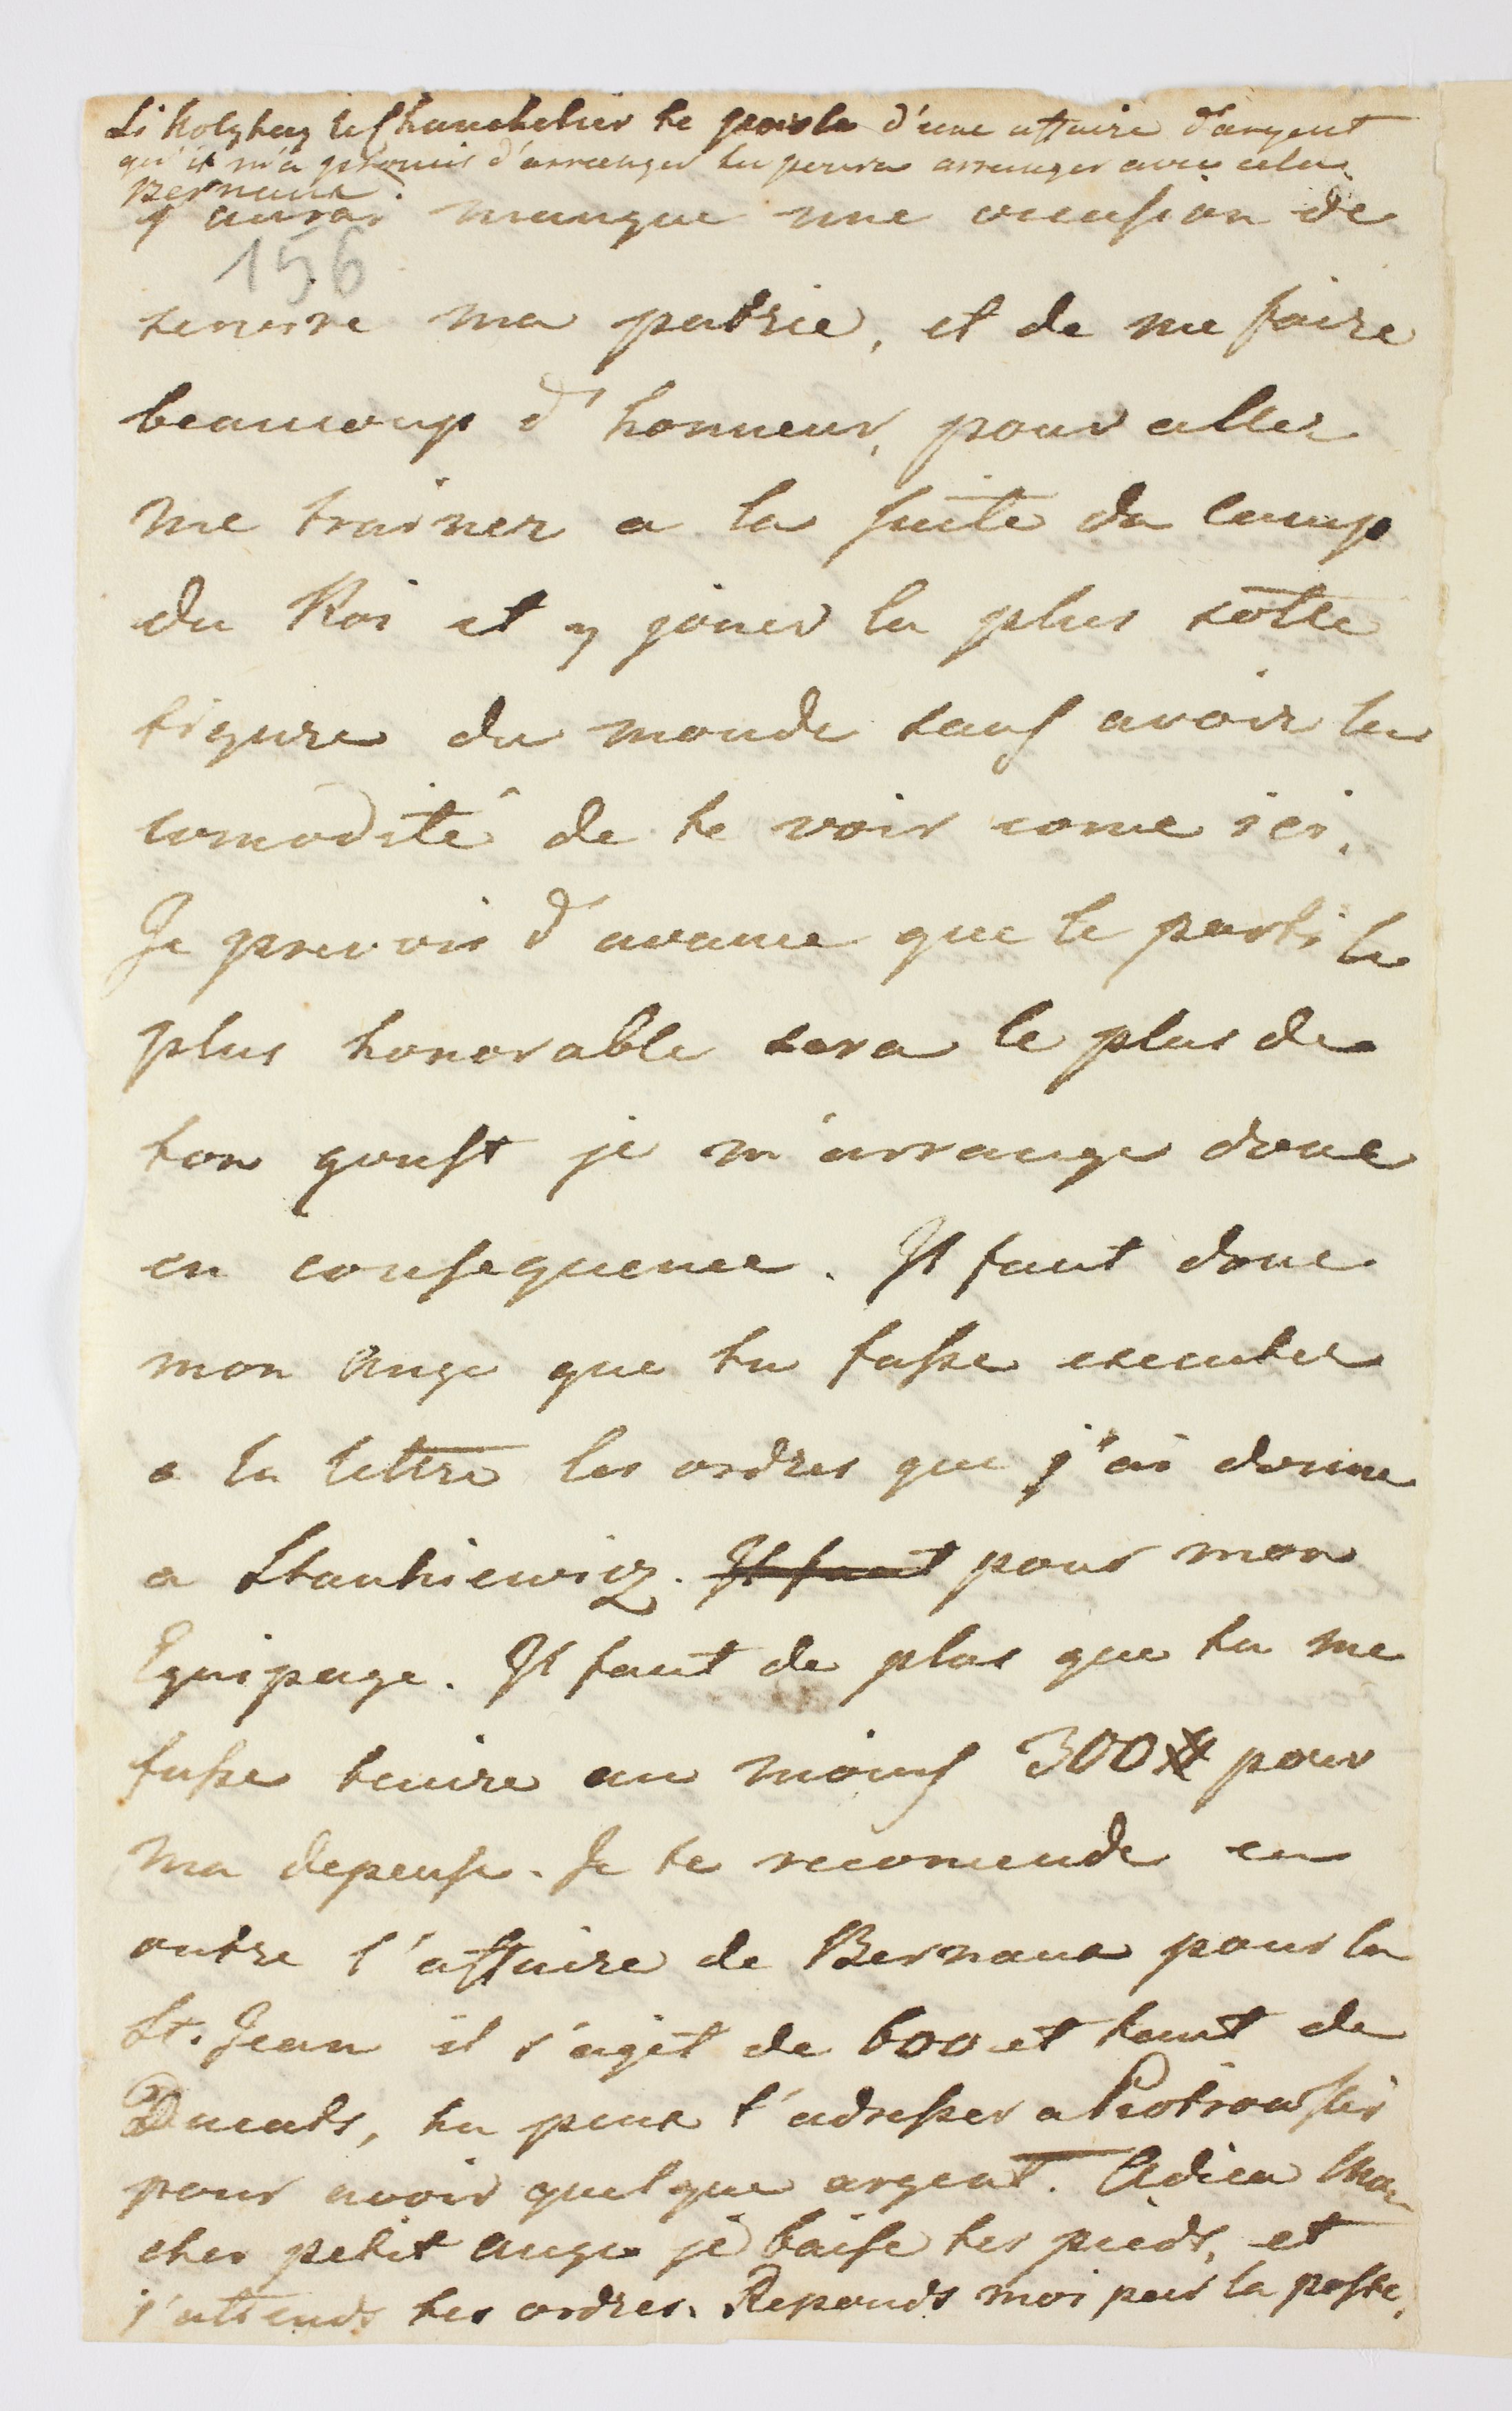 Si Kolgtay le Chanchelier te parle d'une affaire d'argent
qu'il m'a promis d'arranger tu pourra arranger avec cela
Bernaux.
j'aurai manque une occasion de
156
servire ma patrie, et de me faire
beaucoup d'honneur, pour aller
me trainer a la suite du camp
du Roi et y jouer la plus sotte
figure du monde sans avoir la
comodité de te voir come ici.
Je prevois d'avance que le parti le
plus honorable sera le plus de
ton goust je m'arrange donc
en consequence. Il faut donc
mon Ange que tu fasse executer
a la lettre les ordres que j'ai donne
a Stankiewicz. Il faut pour mon
Equipage. Il faut de plus que tu me
fasse tenire au moins 300 # pour
ma depense. Je te recomende en
outre l'affaire de Bernaux pour la
St. Jean il s'agit de 600 et tant de
Ducats, tu peux t'adresser a Piotrowski
pour avoir quelque argent. Adieu Mon
cher petit Ange je baise tes pieds, et
j'attends tes ordres. Reponds moi par la poste.